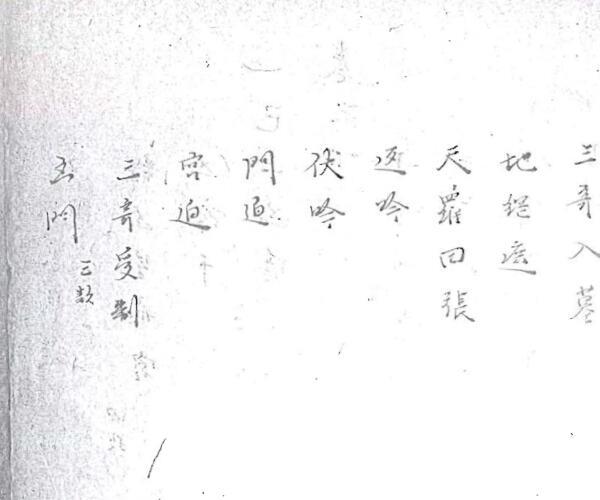 三奇入墓
地網遮
天羅回張
返吟
伏吟
門迫
宮迫
三奇受制
五門
三款